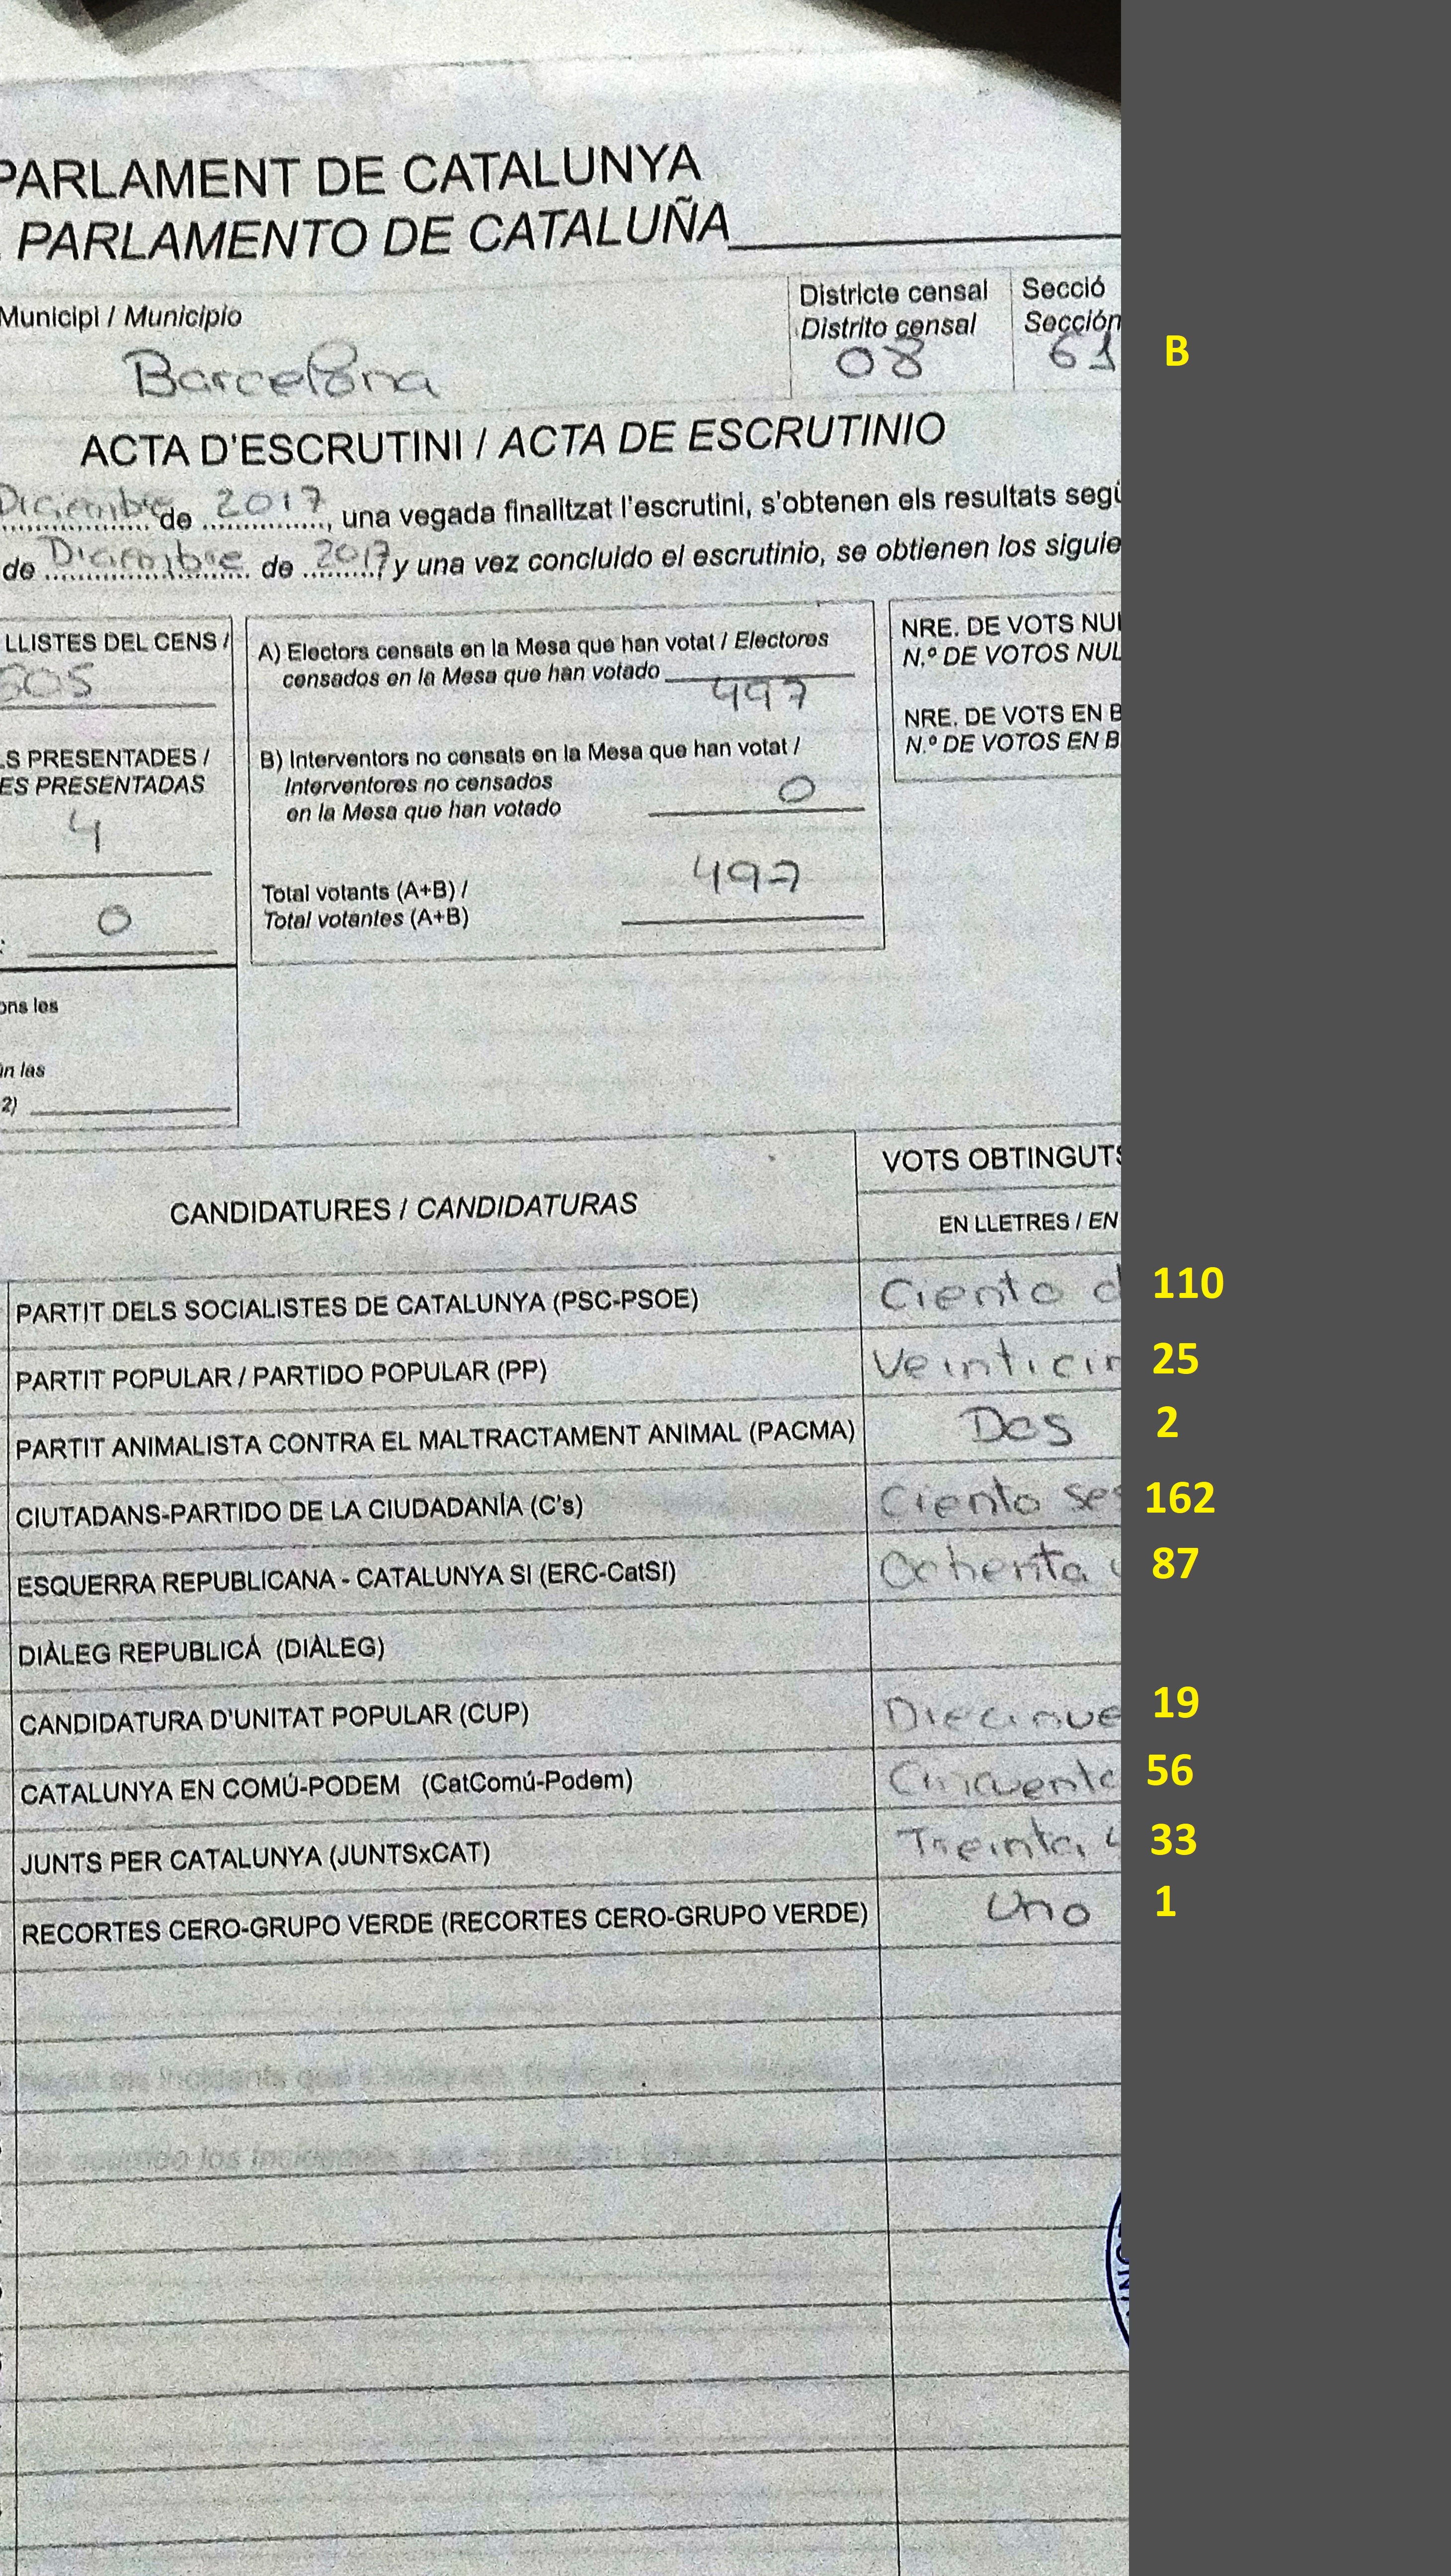 PARLAMENT DE CATALUNYA
PARLAMENTO DE CATALUÑA
Municipi / Municipio
Barcelona
Districte censal
Distrito censal
08
Secció
Sección
61
B
ACTA D'ESCRUTINI / ACTA DE ESCRUTINIO
Diciembre de 2017, una vegada finalitzat l'escrutini, s'obtenen els resultats
de Diciembre de 2017 y una vez concluido el escrutinio, se obtienen los
LLISTES DEL CENS /
PRESENTADES /
PRESENTADAS
4
0
A) Electors censats en la Mesa que han votat / Electores
censados en la Mesa que han votado 497
B) Interventors no censats en la Mesa que han votat /
Interventores no censados
en la Mesa que han votado 0
Total votants (A+B) /
Total votantes (A+B) 497
NRE. DE VOTS
N.º DE VOTOS
NRE. DE VOTS EN B
N.º DE VOTOS EN B
les
las
2)
CANDIDATURES / CANDIDATURAS
VOTS OBTINGUTS
EN LLETRES / EN
PARTIT DELS SOCIALISTES DE CATALUNYA (PSC-PSOE) Ciento d 110
PARTIT POPULAR / PARTIDO POPULAR (PP) Veinticin 25
PARTIT ANIMALISTA CONTRA EL MALTRACTAMENT ANIMAL (PACMA) Dos 2
CIUTADANS-PARTIDO DE LA CIUDADANÍA (C's) Ciento ses 162
ESQUERRA REPUBLICANA - CATALUNYA SI (ERC-CatSI) Ochenta 87
DIÀLEG REPUBLICÁ (DIÀLEG)
CANDIDATURA D'UNITAT POPULAR (CUP) Diecinue 19
CATALUNYA EN COMÚ-PODEM (CatComú-Podem) Cincuenta 56
JUNTS PER CATALUNYA (JUNTSxCAT) Treinta 33
RECORTES CERO-GRUPO VERDE (RECORTES CERO-GRUPO VERDE) Uno 1